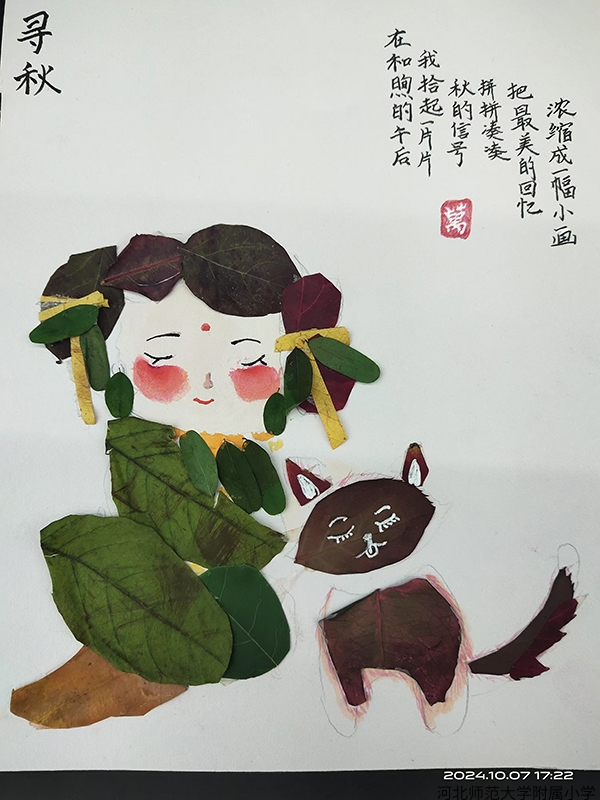 寻秋
在和煦的午后
我拾起一片片
秋的信号
拼拼凑凑
把最美的回忆
浓缩成一幅小画
萬
2024.10.07 17:22
河北师范大学附属小学